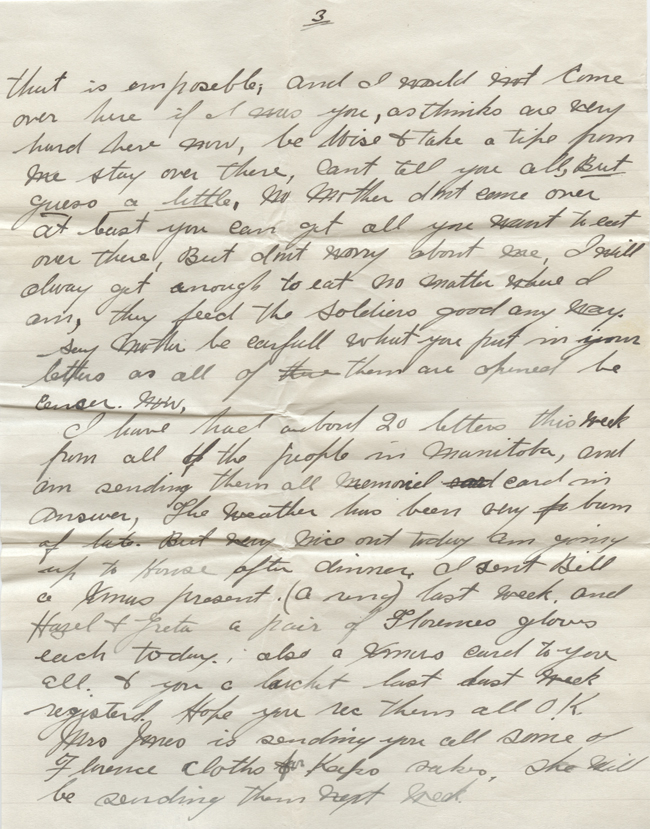 3
that is emposeble, and I would not Come
over here if I was you, as thinks are very
hard here now, be Wise & take a tipe from
me stay over there, cant tell you all, But
guess a little, No Mother dont come over
at least you can get all you want to eat
over there, But dont worry about me, I will
alway get enough to eat no matter where I
am, they feed the Soldiers good any way.
Say Mother be carfull what you put in your
letters as all of them are opened be
censer. Now,
I have had about 20 letters this week
from all of the people in Manitoba, and
am sending them all Memoriel card in
answer, The weather has been very bum
of late. But very nice out today am going
up to House after dinner, I sent Bill
a Xmas present. (a ring) last week. and
Hazel & Greta a pair of Florences gloves
each today. ; also a Xmas card to you
all. & you a lockct last last week
registerd. Hope you rec them all O.K.
Mrs Jones is sending you all some of
Florence cloths for Keeps sakes, She Will
be sending them next Week.